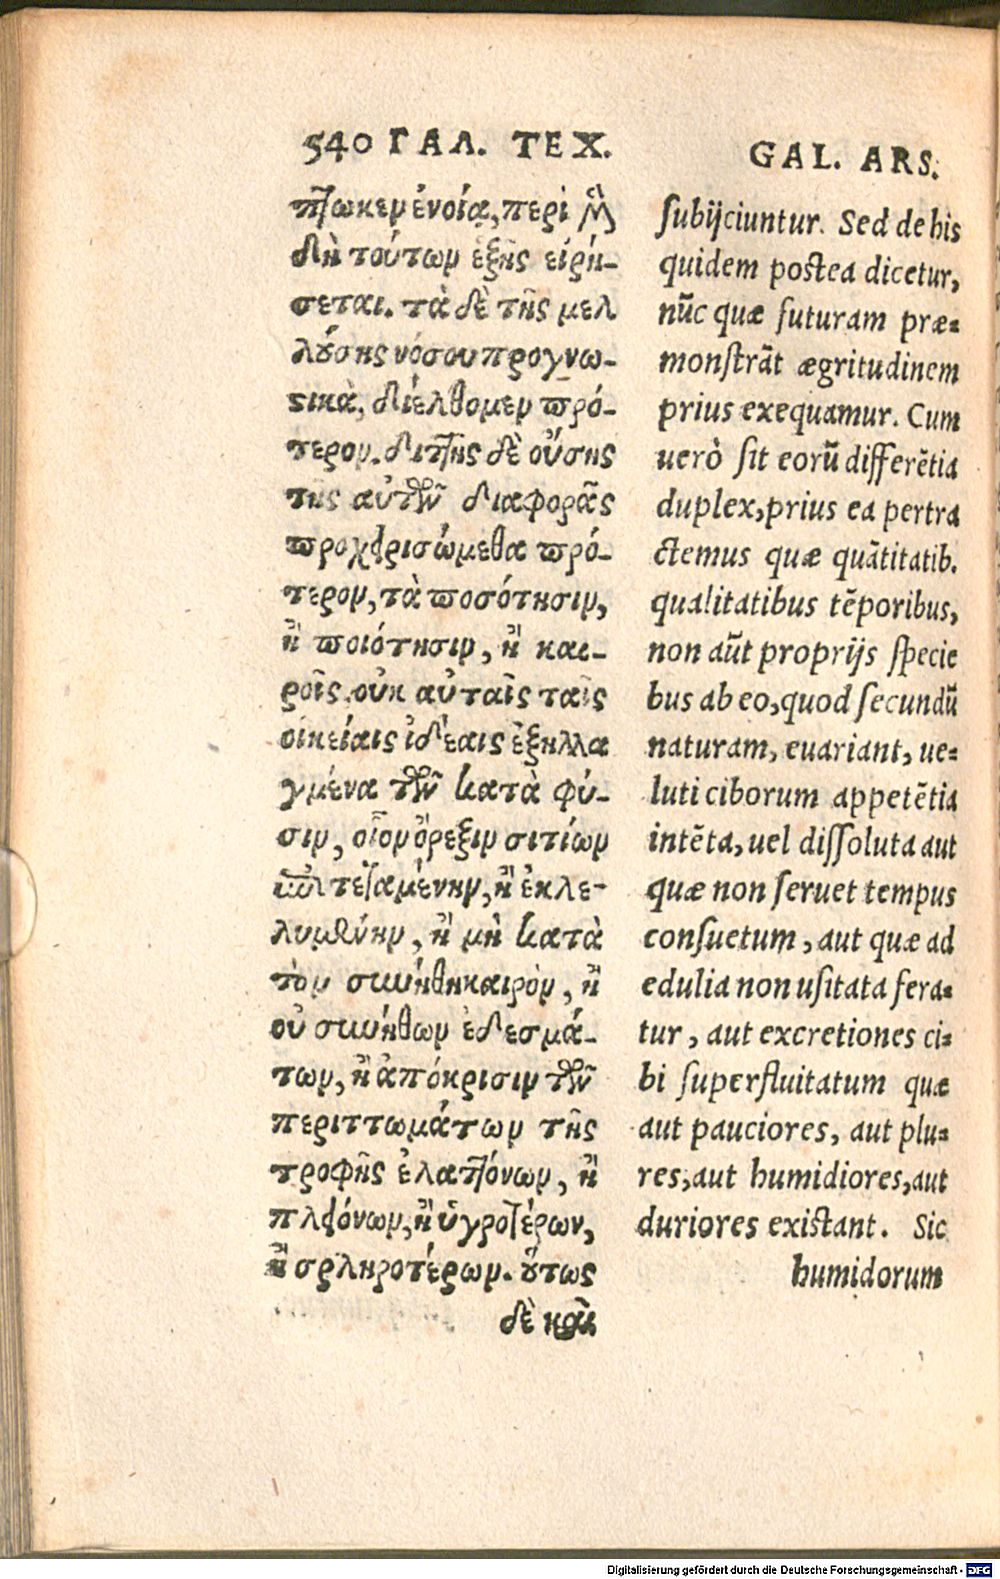 540 ΓΑΛ. ΤΕΧ.
πτωκεν ἐννοίᾳ, περὶ μὲν
δὴ τούτων ἑξῆς εἰρή-
σεται. τὰ δὲ τῆς μελ
λούσης νόσου προγνω-
στικὰ, διέλθομεν πρό-
τερον. διττῆς δὲ οὔσης
τῆς αὐτῶν διαφορᾶς
προχειρισώμεθα πρό-
τερον, τὰ ποσότησιν,
ἢ ποιότησιν, ἢ και-
ροῖς. οὐκ αὐταῖς ταῖς
οἰκείαις ἰδέαις ἐξηλλα
γμένα τῶν κατὰ φύ-
σιν, οἷον ὄρεξιν σιτίων
ἐπιτεταμένην, ἢ ἐκλε-
λυμένην, ἢ μὴ κατὰ
τὸν συνήθη καιρὸν, ἢ
οὐ συνήθων ἐδεσμά-
των, ἢ ἀπόκρισιν τῶν
περιττωμάτων τῆς
τροφῆς ἐλαττόνων, ἢ
πλειόνων, ἢ ὑγροτέρων,
ἢ σκληροτέρων. οὕτως
δὲ καὶ
GAL. ARS.
subijciuntur. Sed de his
quidem postea dicetur,
nũc quæ futuram præ=
monstrãt ægritudinem
prius exequamur. Cum
uerò sit eorũ differẽtia
duplex, prius ea pertra
ctemus quæ quãtitatib.
qualitatibus tẽporibus,
non aũt proprijs specie
bus ab eo, quod secundũ
naturam, euariant, ue=
luti ciborum appetẽtia
intẽta, uel dissoluta aut
quæ non seruet tempus
consuetum, aut quæ ad
edulia non usitata fera=
tur, aut excretiones ci=
bi superfluitatum quæ
aut pauciores, aut plu=
res, aut humidiores, aut
duriores existant. Sic
humidorum
Digitalisierung gefördert durch die Deutsche Forschungsgemeinschaft - DFG